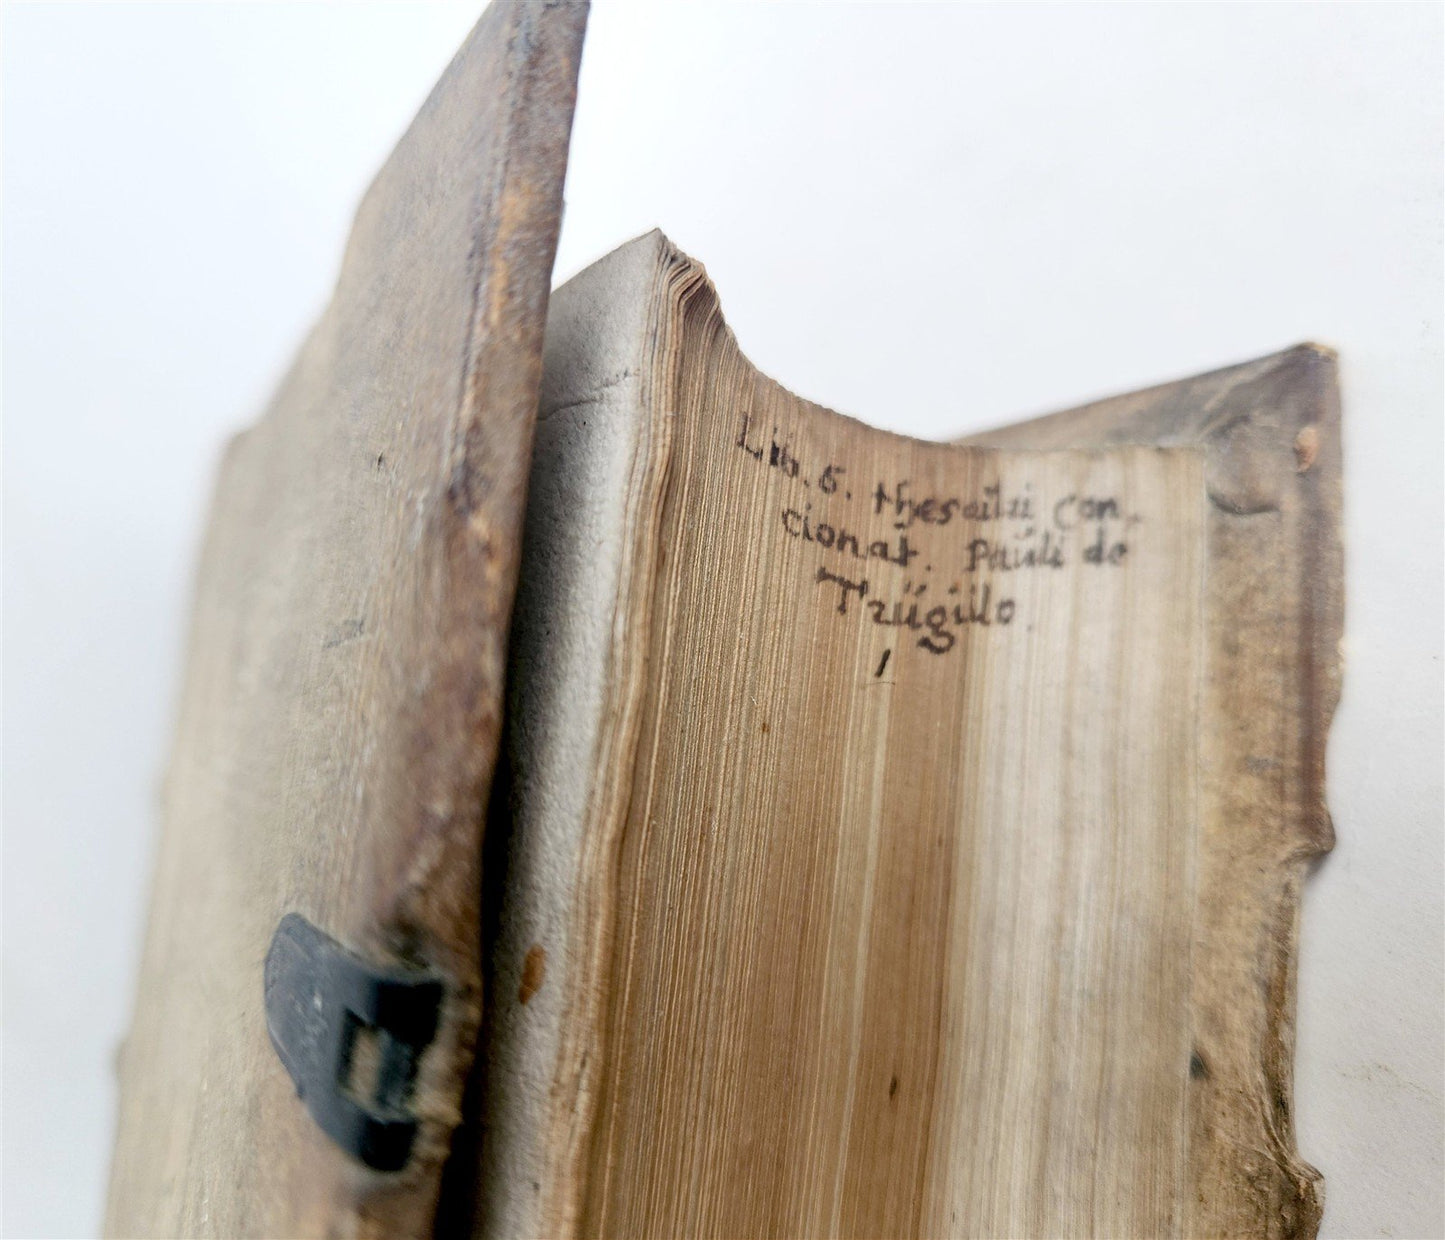 Lib. 6. thesauri con-
cionat. Pauli de
Trügillo.
1